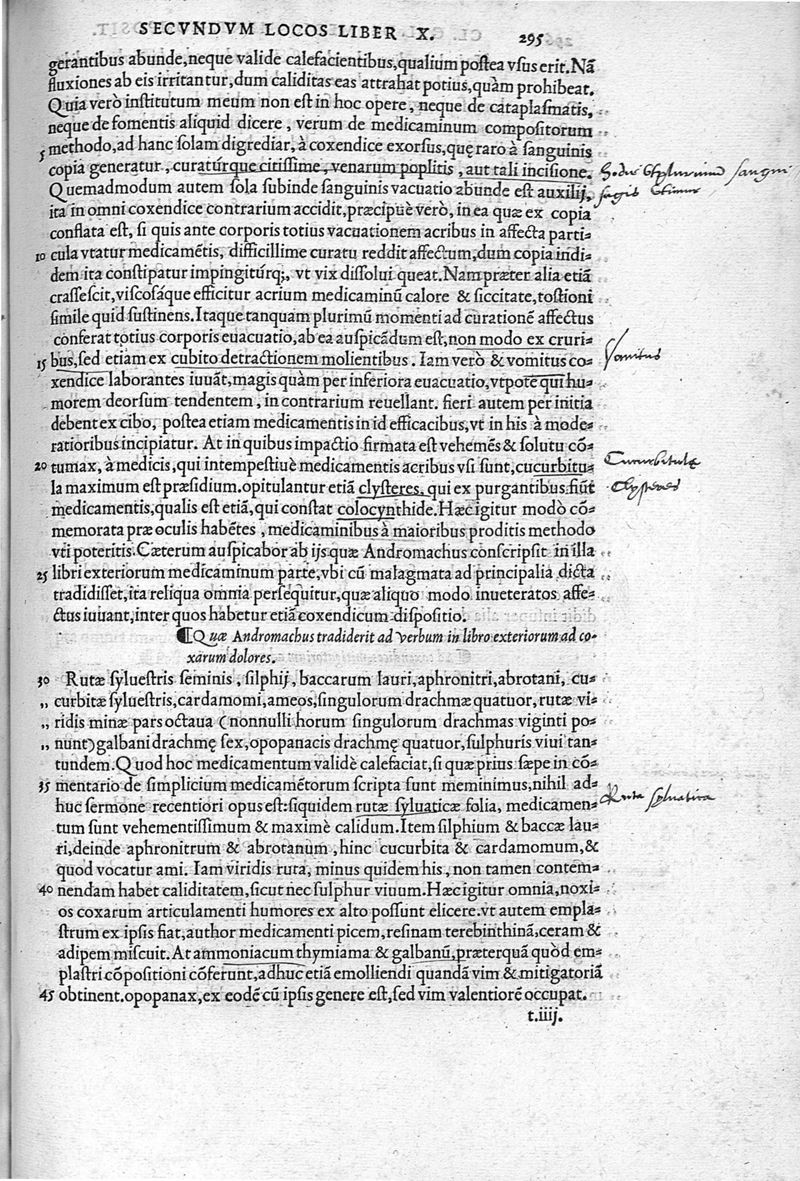 SECVNDVM LOCOS LIBER X. 295
gerantibus abunde, neque valide calefacientibus, qualium postea vsus erit. Nã
fluxiones ab eis irritantur, dum caliditas eas attrahat potius, quàm prohibeat.
Quia verò institutum meum non est in hoc opere, neque de cataplasmatis,
neque de fomentis aliquid dicere, verum de medicaminum compositorum
5 methodo, ad hanc solam digrediar, à coxendice exorsus, quę raro à sanguinis
copia generatur, curatúrque citissime, venarum poplitis, aut tali incisione.
Quemadmodum autem sola subinde sanguinis vacuatio abunde est auxilij,
ita in omni coxendice contrarium accidit, præcipuè vero, in ea quæ ex copia
conflata est, si quis ante corporis totius vacuationem acribus in affecta parti=
10 cula vtatur medicamẽtis, difficillime curatu reddit affectum, dum copia inibi=
dem ita constipatur impingitúrq;, vt vix dissolui queat. Nam præter alia etiã
crassescit, viscosáque efficitur acrium medicaminũ calore & siccitate, tostioni
simile quid sustinens. Itaque tanquam plurimũ momenti ad curationẽ affectus
conferat totius corporis euacuatio, ab ea auspicãdum est, non modo ex cruri=
15 bus, sed etiam ex cubito detractionem molientibus. Iam verò & vomitus co=
xendice laborantes iuuãt, magis quàm per inferiora euacuatio, vtpote qui hu=
morem deorsum tendentem, in contrarium reuellant. fieri autem per initia
debent ex cibo, postea etiam medicamentis in id efficacibus, vt in his à mode=
ratioribus incipiatur. At in quibus impactio firmata est vehemẽs & solutu cõ=
20 tumax, à medicis, qui intempestiuè medicamentis acribus vsi sunt, cucurbitu=
la maximum est præsidium. opitulantur etiã clysteres, qui ex purgantibus fiũt
medicamentis, qualis est etiã, qui constat colocynthide. Hæc igitur modò cõ=
memorata præ oculis habẽtes, medicaminibus à maioribus proditis methodo
vti poteritis. Cæterum auspicabor ab ijs quæ Andromachus conscripsit in illa
25 libri exteriorum medicaminum parte, vbi cũ malagmata ad principalia dicta
tradidisset, ita reliqua omnia persequitur, quæ aliquo modo inueteratos affe=
ctus iuuant, inter quos habetur etiã coxendicum dispositio.
¶ Quæ Andromachus tradiderit ad verbum in libro exteriorum ad co=
xarum dolores.
30 Rutæ syluestris seminis, silphij, baccarum lauri, aphronitri, abrotani, cu=
„ curbitæ syluestris, cardamomi, ameos, singulorum drachmæ quatuor, rutæ vi=
„ ridis minæ pars octaua (nonnulli horum singulorum drachmas viginti po=
„ nunt) galbani drachmę sex, opopanacis drachmę quatuor, sulphuris viui tan=
tundem. Quod hoc medicamentum validè calefaciat, si quæ prius sæpe in cõ=
35 mentario de simplicium medicamẽtorum scripta sunt meminimus, nihil ad=
huc sermone recentiori opus est: siquidem rutæ syluaticæ folia, medicamen=
tum sunt vehementissimum & maximè calidum. Item silphium & baccæ lau=
ri, deinde aphronitrum & abrotanum, hinc cucurbita & cardamomum, &
quod vocatur ami. Iam viridis ruta, minus quidem his, non tamen contem=
40 nendam habet caliditatem, sicut nec sulphur viuum. Hæc igitur omnia, noxi=
os coxarum articulamenti humores ex alto possunt elicere. vt autem empla=
strum ex ipsis fiat, author medicamenti picem, resinam terebinthinã, ceram &
adipem miscuit. At ammoniacum thymiama & galbanũ, præterquã quòd em=
plastri cõpositioni cõferunt, adhuc etiã emolliendi quandã vim & mitigatoriã
45 obtinent. opopanax, ex eodẽ cũ ipsis genere est, sed vim valentiorẽ occupat.
t.iiij.
Vomitus
Cucurbitulæ
Clysteres
Ruta syluatica